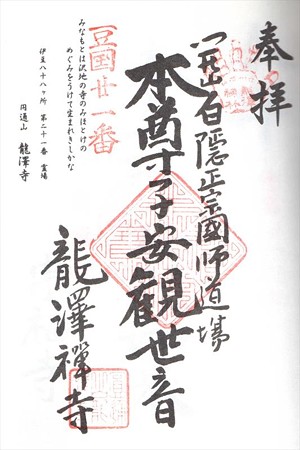 奉拝
開山白隠正宗國師道場
本尊子安観世音
龍澤禅寺
豆国廿一番
みなもとは沢地の寺のみほとけの
めぐみをうけて生まれきしかな
伊豆八十八ヶ所 第二十一番 霊場
円通山 龍澤寺